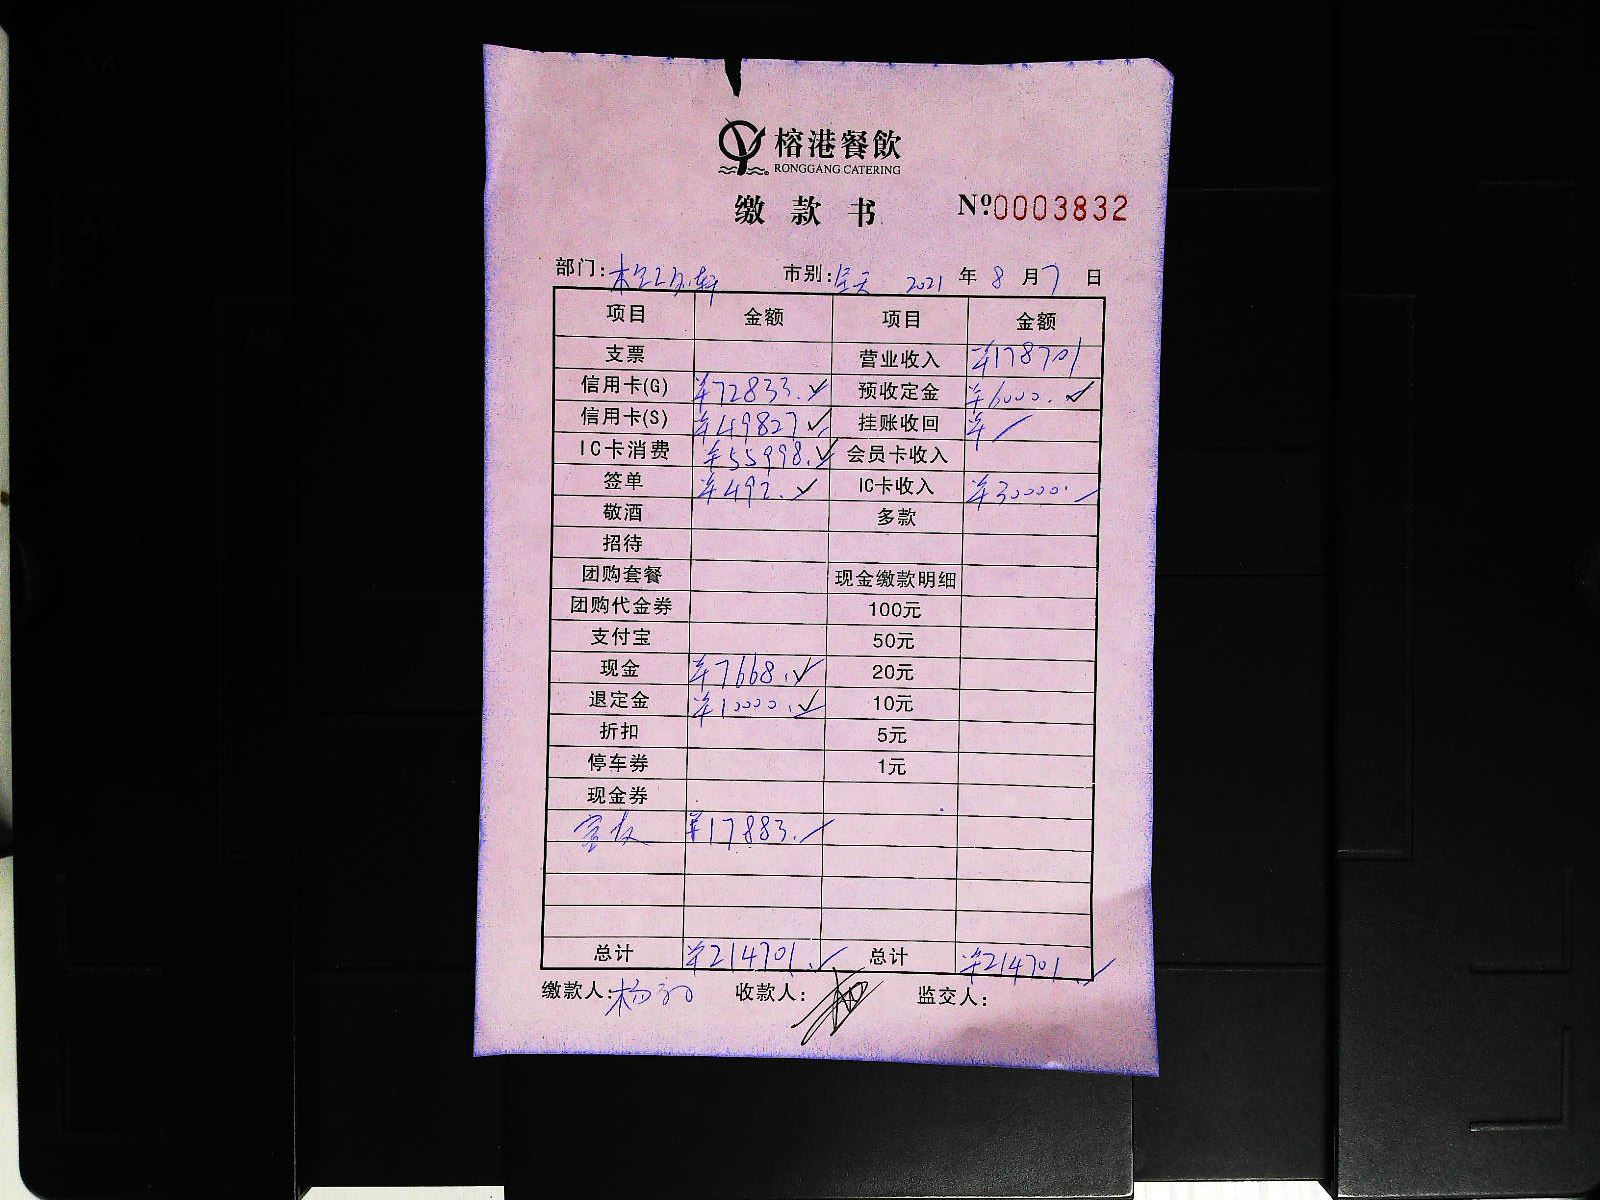 榕港餐飲
RONGGANG CATERING
缴款书 №0003832
部门: 市别:全天 2021年8月7日
项目 金额 项目 金额
支票 营业收入 ¥178701
信用卡(G) ¥72833.✓ 预收定金 ¥6000.✓
信用卡(S) ¥49827✓ 挂账收回 ¥/
IC卡消费 ¥55998.✓ 会员卡收入
签单 ¥492.✓ IC卡收入 ¥30000.
敬酒 多款
招待
团购套餐 现金缴款明细
团购代金券 100元
支付宝 50元
现金 ¥7668.✓ 20元
退定金 ¥10000.✓ 10元
折扣 5元
停车券 1元
现金券
¥17883.
总计 ¥214701. 总计 ¥214701.
缴款人:杨 收款人: 监交人: